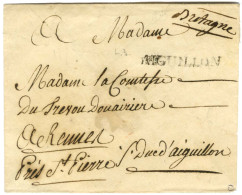 A Madame
Bretagne
AIGUILLON
Madame la Comtesse
Du Tresou Douairiere
A Rennes
Près St. Pierre / Duc d'aiguillon